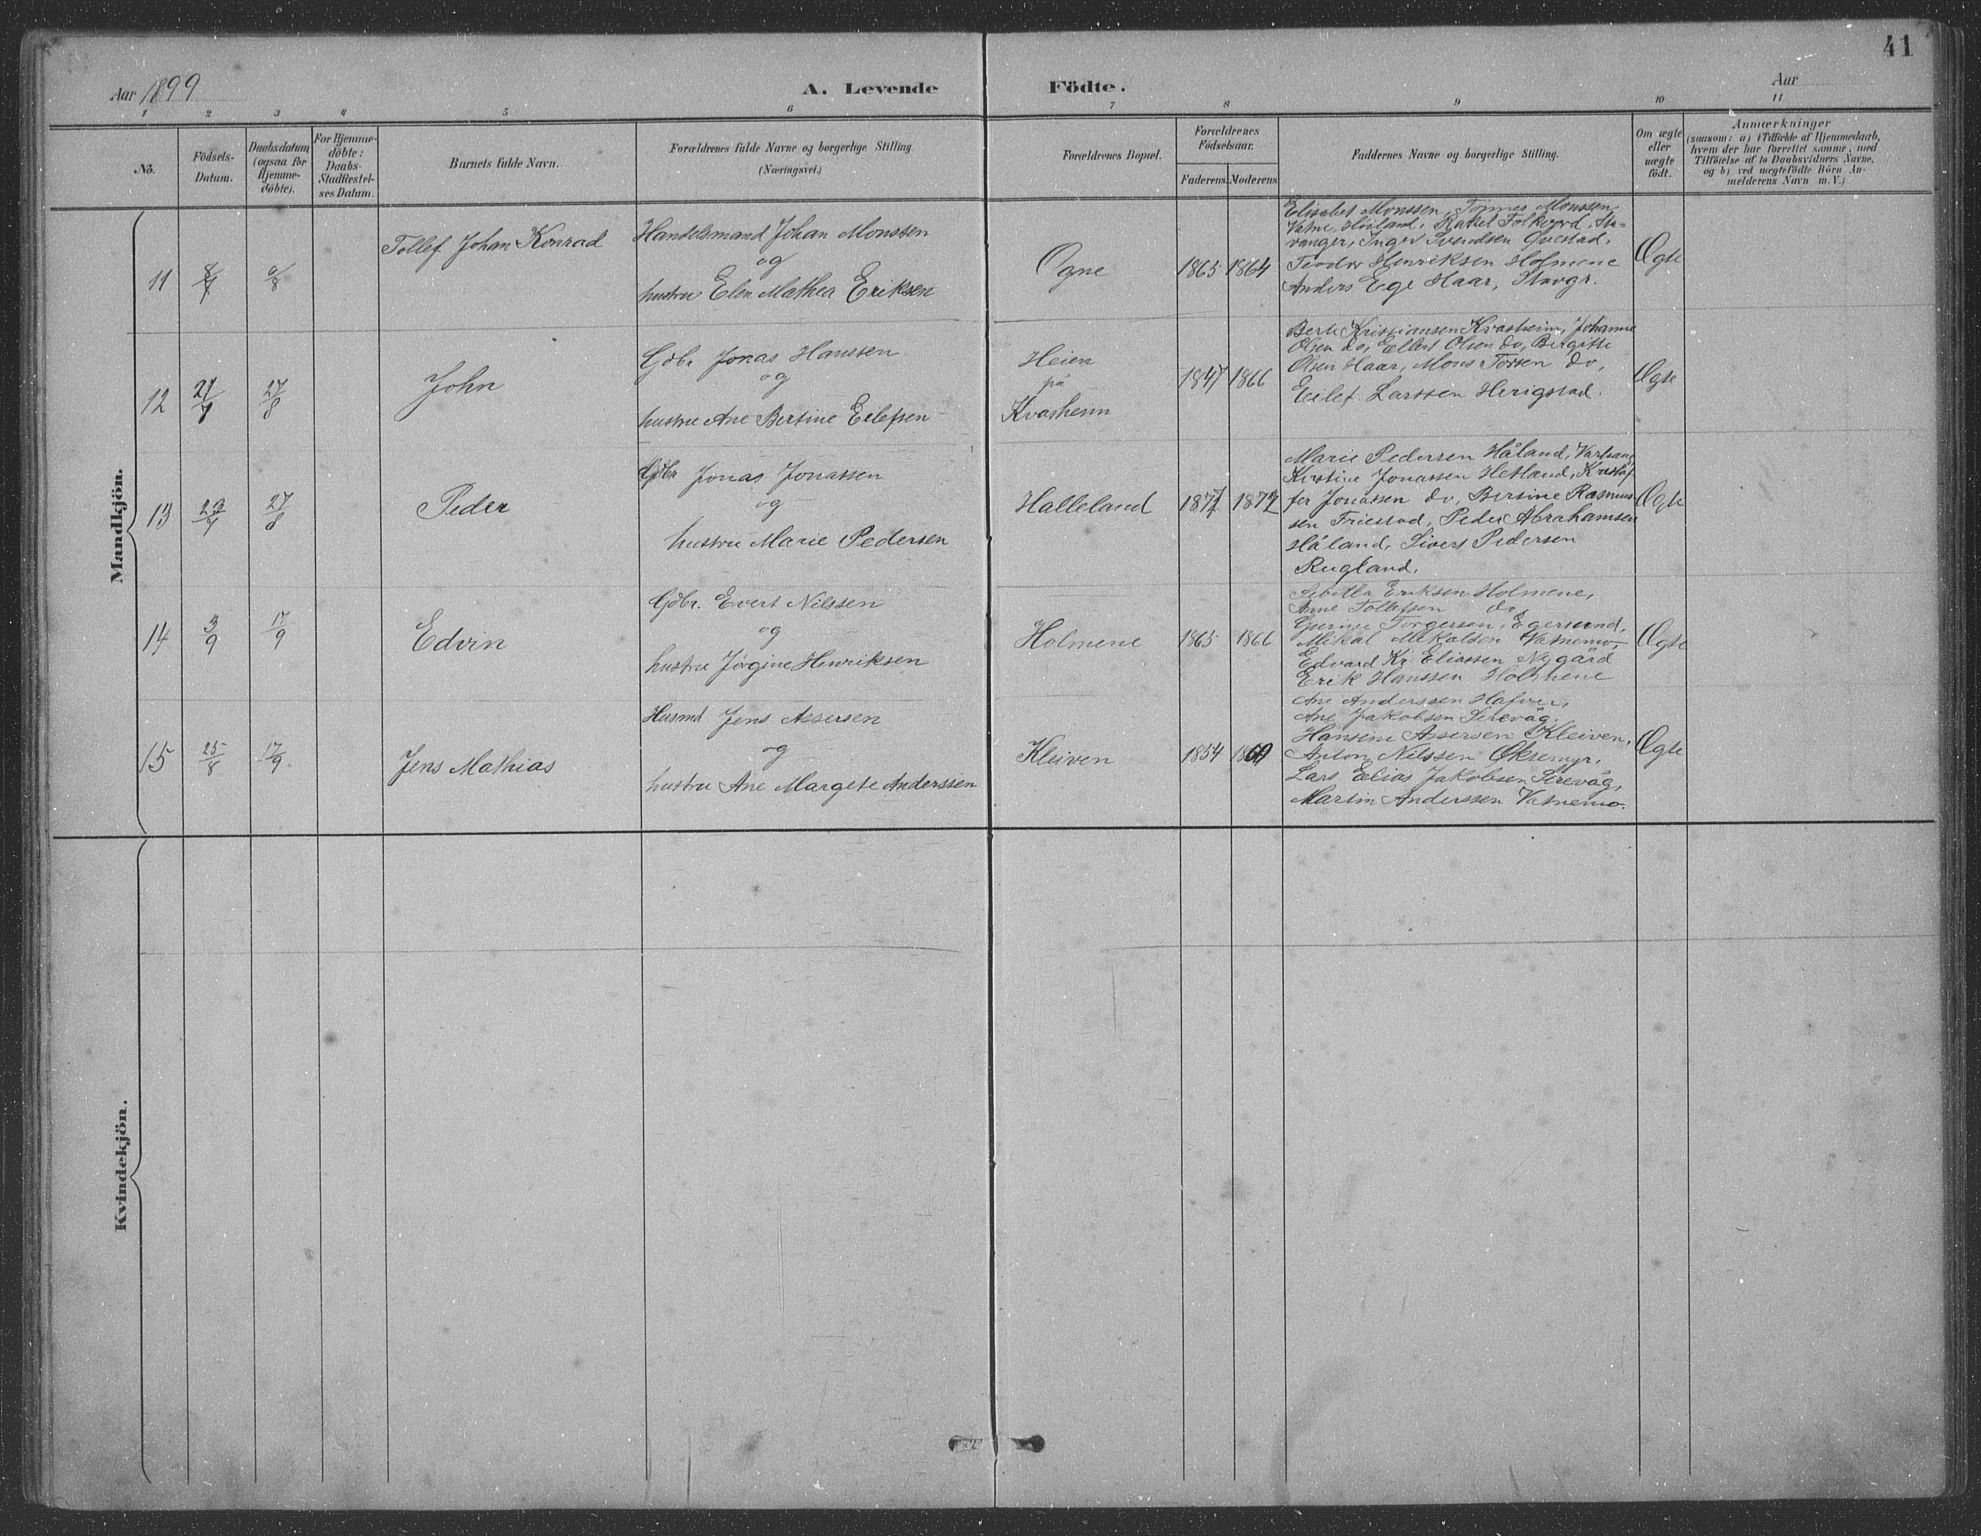 41
Aar 1899
A. Levende Födte.
Aar
1 2 3 4 5 6 7 8 9 10 11
No.
Födsels-
Datum.
Daabsdatum
(ogsaa for
Hjemme-
döbte).
For Hjemme-
döbte:
Daabs-
Stadfæstel-
ses Datum.
Barnets fulde Navn.
Forældrenes fulde Navne og borgerlige Stilling
(Næringsvei.)
Forældrenes Bopæl.
Forældrenes
Födselsaar.
Faderens. Moderens.
Faddernes Navne og borgerlige Stilling.
Om ægte
eller
uægte
født.
Anmærkninger
(saasom: a) i Tilfælde af Hjemmedaab,
hvem der har forrettet samme, med
Tilföielse af to Daabsvidners Navne,
og b) ved uægtefödte Börn An-
melderens Navn m. V.)
Mandkjön.
11
Tollef Johan Konrad
Handelsmand Johan Monssen
og
hustru Elen Mathea Eriksen
Ogne
1865 1864
Elisabet Monssen, Tønnes Monssen
Vatne, Høiland, Rakel Folkvord, Sta=
vanger, Inger Svendsen
Teodor Henriksen Holmene
Anders Ege Haar, Stavgr.
Ægte
12
27/8
John
Gdbr Jonas Hanssen
og
hustru Ane Bertine Eilefsen
Heien
på
Kvasheim
1847 1866
Berte Kristiansen Kvasheim, Johanne
Olsen do, Ellert Olsen do, Birgitte
Olsen Haar, Mons Torsen do,
Eilef Larssen Herigstad.
Ægte
13
27/8
Peder
Gdbr Jonas Jonassen
og
hustru Marie Pedersen
Halleland
1872 1872
Marie Pedersen Håland, Varhaug
Kirstine Jonassen Hetland, Kristof
fer Jonassen do, Bertine Rasmus
sen Friestad, Peder Abrahamsen
Håland, Sivert Pedersen
Rugland.
Ægte
14
3/9
17/9
Edvin
Gdbr. Evert Nilssen
og
hustru Jørgine Henriksen
Holmene
1865 1866
Sibilla Eriksen Holmene,
Anne Tollefsen do,
Torgersen, Egersund,
Mikal Mikalsen Vatnemo,
Edvard Kr. Eliassen Nygård
Erik Hanssen Holmene
Ægte
15
25/8
17/9
Jens Mathias
Husmd Jens Assersen
og
hustru Ane Margete Anderssen
Kleiven
1854 1860
Ane Anderssen Hafver,
Ane Jakobsen Sirevåg.
Hansine Assersen Kleiven,
Anton Nilssen Oksemyr,
Lars Elias Jakobsen Sirevåg,
Martin Anderssen Vatnemo.
Ægte
Kvindekjön.